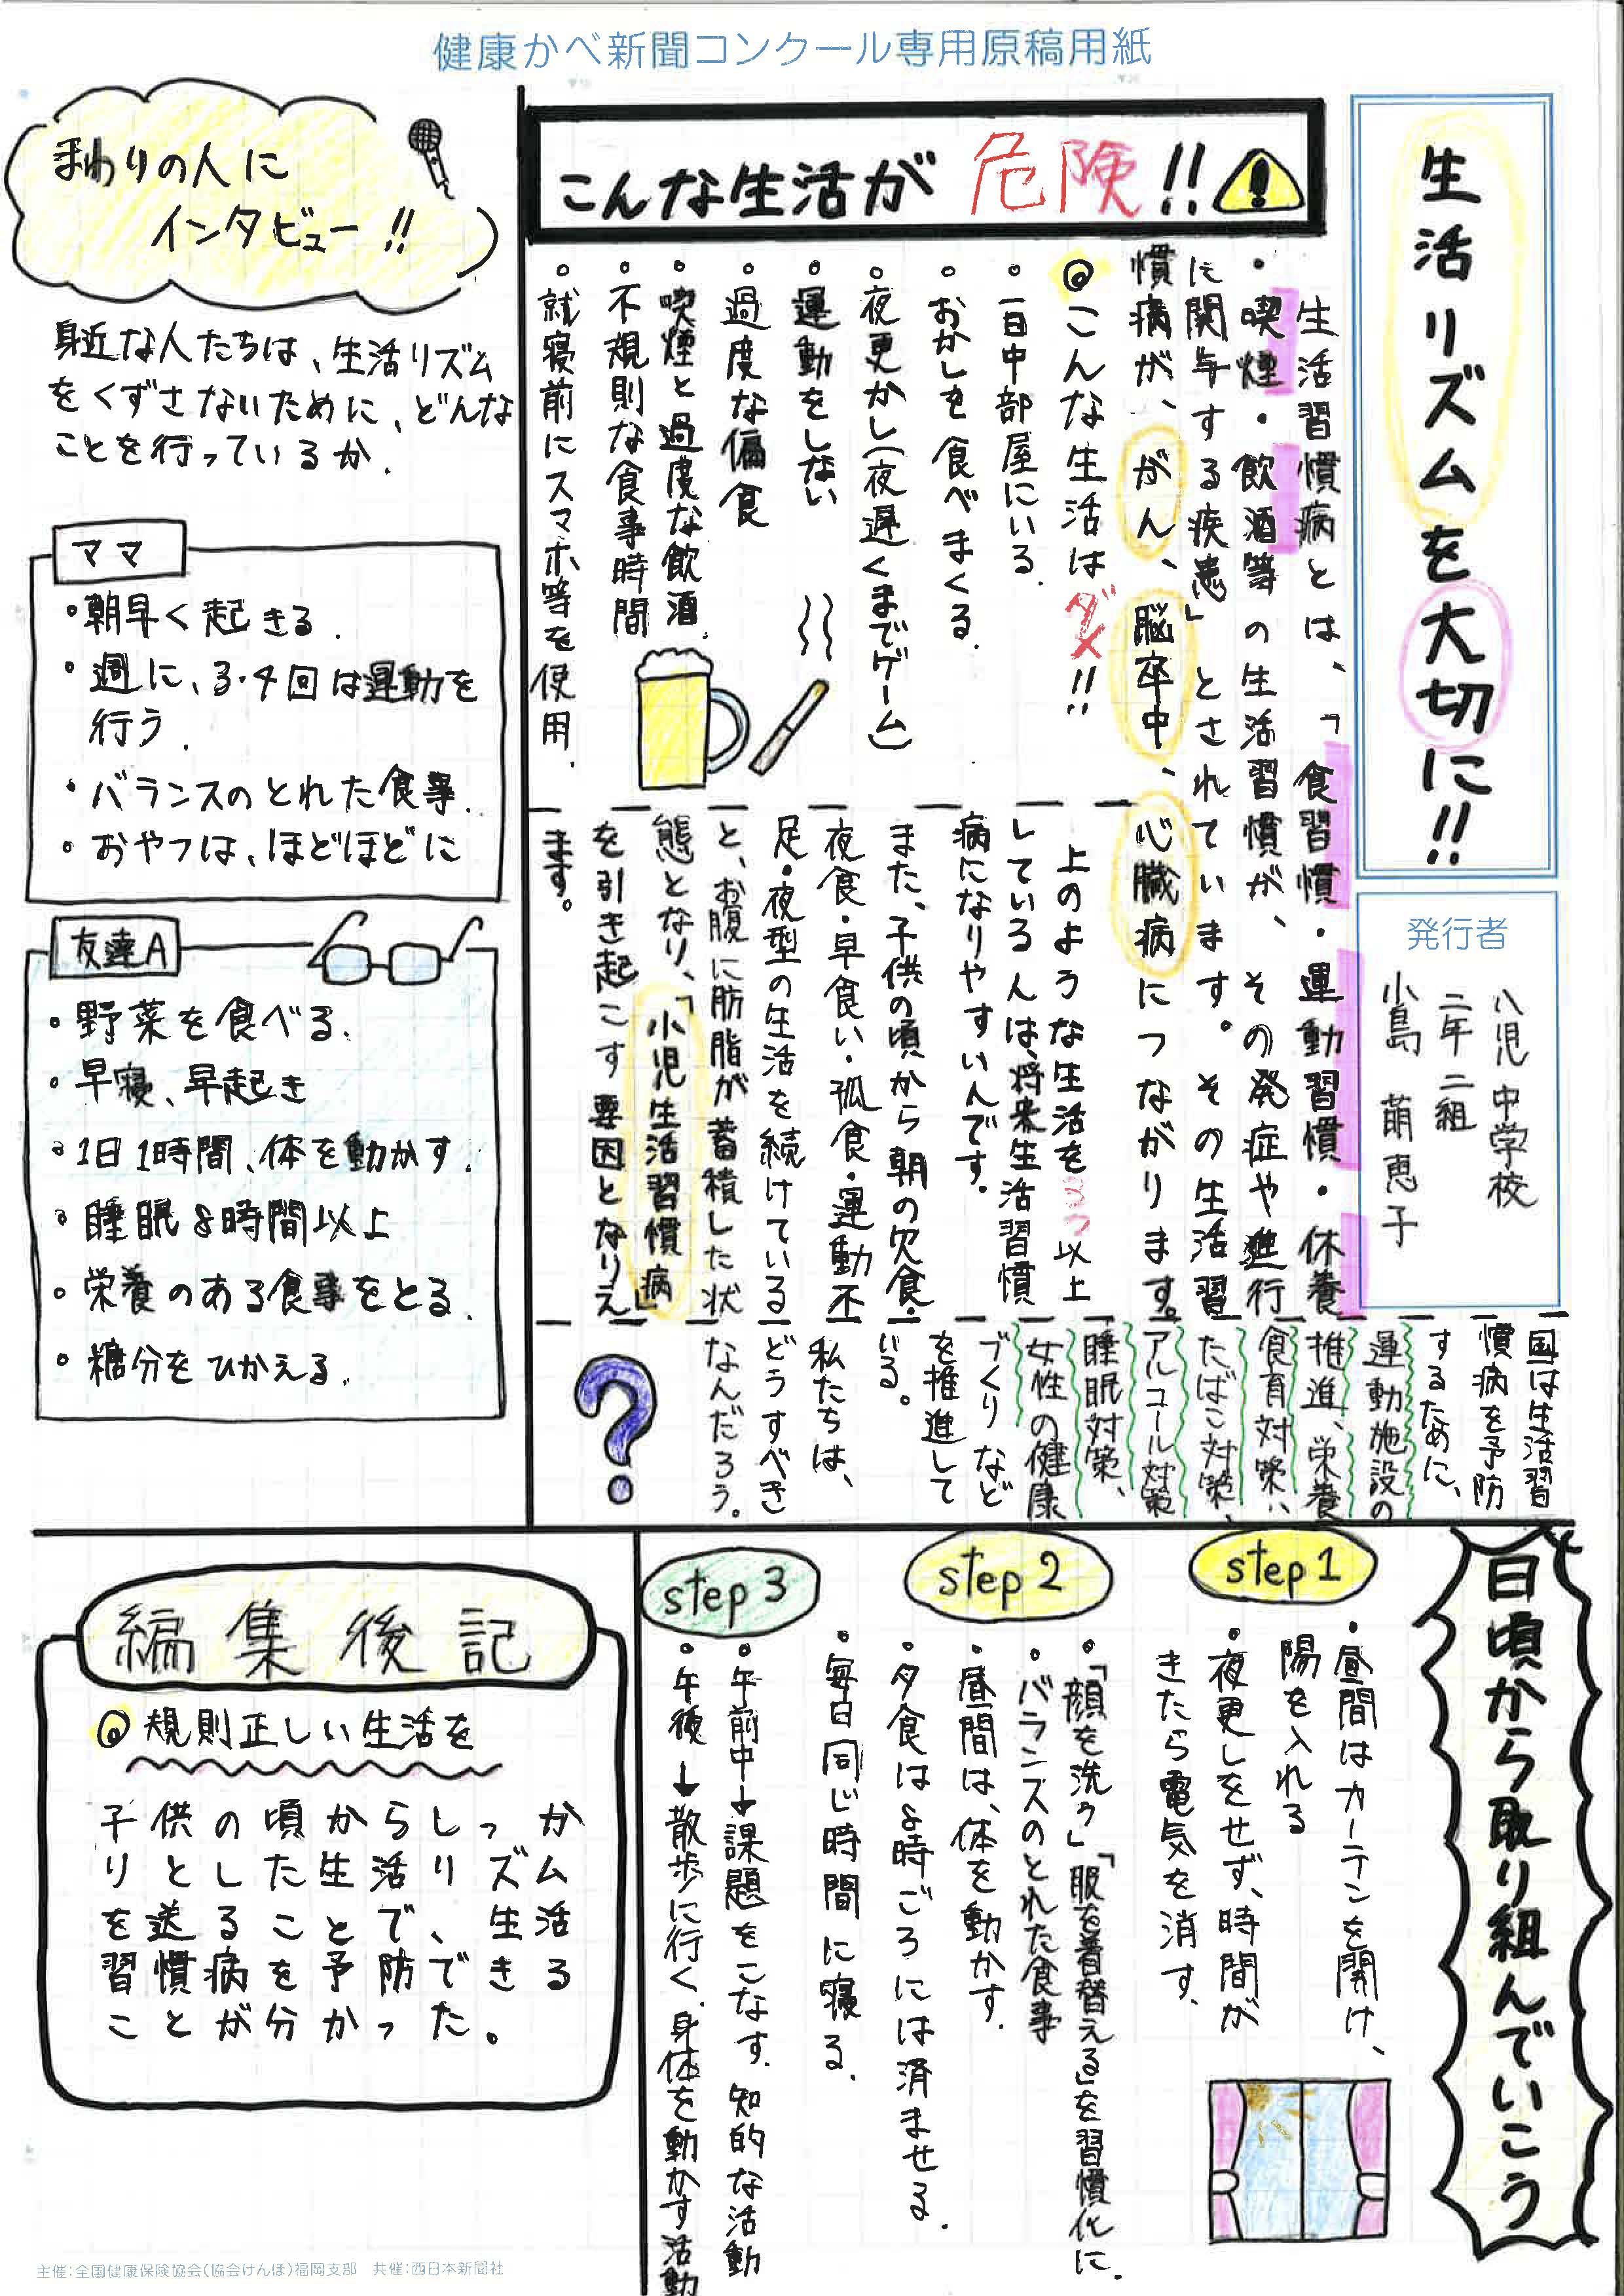 健康かべ新聞コンクール専用原稿用紙
生活リズムを大切に!!
発行者
八児中学校
二年二組
小島 萌恵子
こんな生活が危険!!
生活習慣病とは、「食習慣・運動習慣・休養
・喫煙・飲酒等の生活習慣が、その発症や進行
に関与する疾患」とされています。その生活習
慣病が、がん、脳卒中、心臓病につながります。
◎こんな生活はダメ!!
・一日中部屋にいる.
・おかしを食べまくる.
・夜更かし(夜遅くまでゲーム)
・運動をしない
・過度な偏食
・喫煙と過度な飲酒.
・不規則な食事時間
・就寝前にスマホ等を使用.
上のような生活を3つ以上
している人は、将来生活習慣
病になりやすいんです。
また、子供の頃から朝の欠食・
夜食・早食い・孤食・運動不
足・夜型の生活を続けている
と、お腹に肪脂が蓄積した状
態となり、「小児生活習慣病」
を引き起こす要因となりえ
ます。
国は生活習
慣病を予防
するために、
運動施設の
推進、栄養
食育対策、
たばこ対策、
アルコール対策
睡眠対策、
女性の健康
づくりなど
を推進して
いる。
私たちは、
どうすべき
なんだろう。
?
まわりの人に
インタビュー!!
身近な人たちは、生活リズム
をくずさないために、どんな
ことを行っているか.
ママ
・朝早く起きる.
・週に、3・4回は運動を
行う.
・バランスのとれた食事.
・おやつは、ほどほどに
友達A
・野菜を食べる.
・早寝、早起き
・1日1時間、体を動かす.
・睡眠8時間以上
・栄養のある食事をとる.
・糖分をひかえる.
日頃から取り組んでいこう
step1
・昼間はカーテンを開け、
陽を入れる
・夜更しをせず、時間が
きたら電気を消す.
step2
・「顔を洗う」「服を着替える」を習慣化に.
・バランスのとれた食事
・昼間は、体を動かす.
・夕食は8時ごろには済ませる.
・毎日同じ時間に寝る.
step3
・午前中→課題をこなす.知的な活動
・午後→散歩に行く.身体を動かす活動
編集後記
◎規則正しい生活を
子供の頃からしっか
りとした生活リズム
を送ることで、生活
習慣病を予防できる
ことが分かった。
主催:全国健康保険協会(協会けんぽ)福岡支部 共催:西日本新聞社